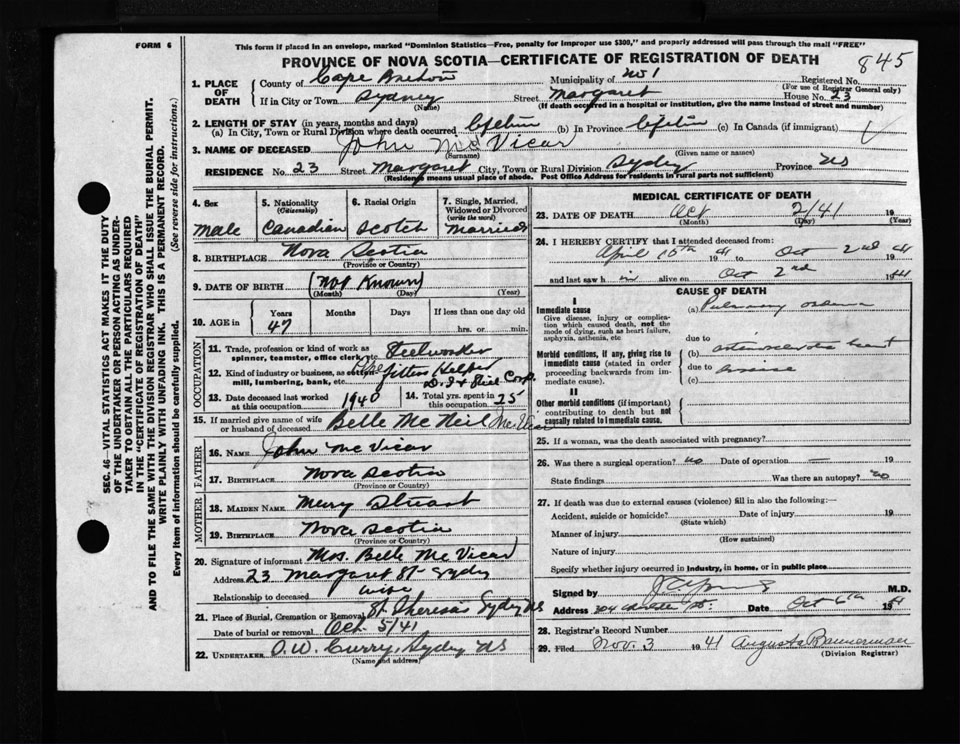 FORM 6
This form if placed in an envelope, marked "Dominion Statistics—Free, penalty for improper use $300," and properly addressed will pass through the mail "FREE"
PROVINCE OF NOVA SCOTIA—CERTIFICATE OF REGISTRATION OF DEATH
845
1. PLACE OF DEATH
County of Cape Breton Municipality of No 1 Registered No.
(For use of Registrar General only)
If in City or Town Sydney Street Margaret House No. 23
(Name) (If death occurred in a hospital or institution, give the name instead of street and number)
2. LENGTH OF STAY (in years, months and days)
(a) In City, Town or Rural Division where death occurred Lifetime (b) In Province Lifetime (c) In Canada (if immigrant)
3. NAME OF DECEASED John McVicar
(Surname) (Given name or names)
RESIDENCE No. 23 Street Margaret City, Town or Rural Division Sydney Province NS
(Residency means usual place of abode. Post Office Address for residents in rural parts not sufficient)
4. Sex
Male
5. Nationality
(Citizenship)
Canadian
6. Racial Origin
Scotch
7. Single, Married, Widowed or Divorced
(write the word)
Married
8. BIRTHPLACE Nova Scotia
(Province or Country)
9. DATE OF BIRTH (Not Known)
(Month) (Day) (Year)
10. AGE in Years Months Days If less than one day
47 hrs. or min.
OCCUPATION
11. Trade, profession or kind of work as spinner, teamster, office clerk, etc. Steelworker
12. Kind of industry or business, as cotton mill, lumbering, bank, etc. Pipe fitters Helper
D. I & Steel Corp.
13. Date deceased last worked at this occupation 1940
14. Total yrs. spent in this occupation 25
15. If married give name of wife or husband of deceased Belle McNeil McVicar
FATHER
16. NAME John McVicar
17. BIRTHPLACE Nova Scotia
(Province or Country)
MOTHER
18. MAIDEN NAME Mary Stuart
19. BIRTHPLACE Nova Scotia
(Province or Country)
20. Signature of informant Mrs. Belle McVicar
Address 23 Margaret St Sydney
Relationship to deceased wife
21. Place of Burial, Cremation or Removal St. Theresas Sydney NS
Date of burial or removal Oct. 5/41
22. UNDERTAKER O.W. Curry, Sydney NS
(Name and address)
MEDICAL CERTIFICATE OF DEATH
23. DATE OF DEATH Oct 2/41 19
(Month) (Day) (Year)
24. I HEREBY CERTIFY that I attended deceased from:
April 15th 1941 to Oct 2nd 1941
and last saw h im alive on Oct 2nd 1941
CAUSE OF DEATH
I
Immediate cause
Give disease, injury or complication which caused death, not the mode of dying, such as heart failure, asphyxia, asthenia, etc
(a) Pulmonary oedema
due to
Morbid conditions, if any, giving rise to immediate cause (stated in order proceeding backwards from immediate cause).
(b) arteriosclerotic heart
due to
(c)
II
Other morbid conditions (if important) contributing to death but not causally related to immediate cause.
25. If a woman, was the death associated with pregnancy?
26. Was there a surgical operation? no Date of operation — 19
State findings Was there an autopsy? no
27. If death was due to external causes (violence) fill in also the following:—
Accident, suicide or homicide? Date of injury 19
(State which)
Manner of injury
(How sustained)
Nature of injury
Specify whether injury occurred in industry, in home, or in public place
Signed by M.D.
Address 304 St. Date Oct 6th 1941
28. Registrar's Record Number
29. Filed Nov. 3 1941 Augusta Bannerman
(Division Registrar)
SEC. 46—VITAL STATISTICS ACT MAKES IT THE DUTY OF THE UNDERTAKER OR PERSON ACTING AS UNDERTAKER TO OBTAIN ALL THE PARTICULARS REQUIRED IN THE "CERTIFICATE OF REGISTRATION OF DEATH" AND TO FILE THE SAME WITH THE DIVISION REGISTRAR WHO SHALL ISSUE THE BURIAL PERMIT.
WRITE PLAINLY WITH UNFADING INK. THIS IS A PERMANENT RECORD.
Every item of information should be carefully supplied. (See reverse side for instructions.)